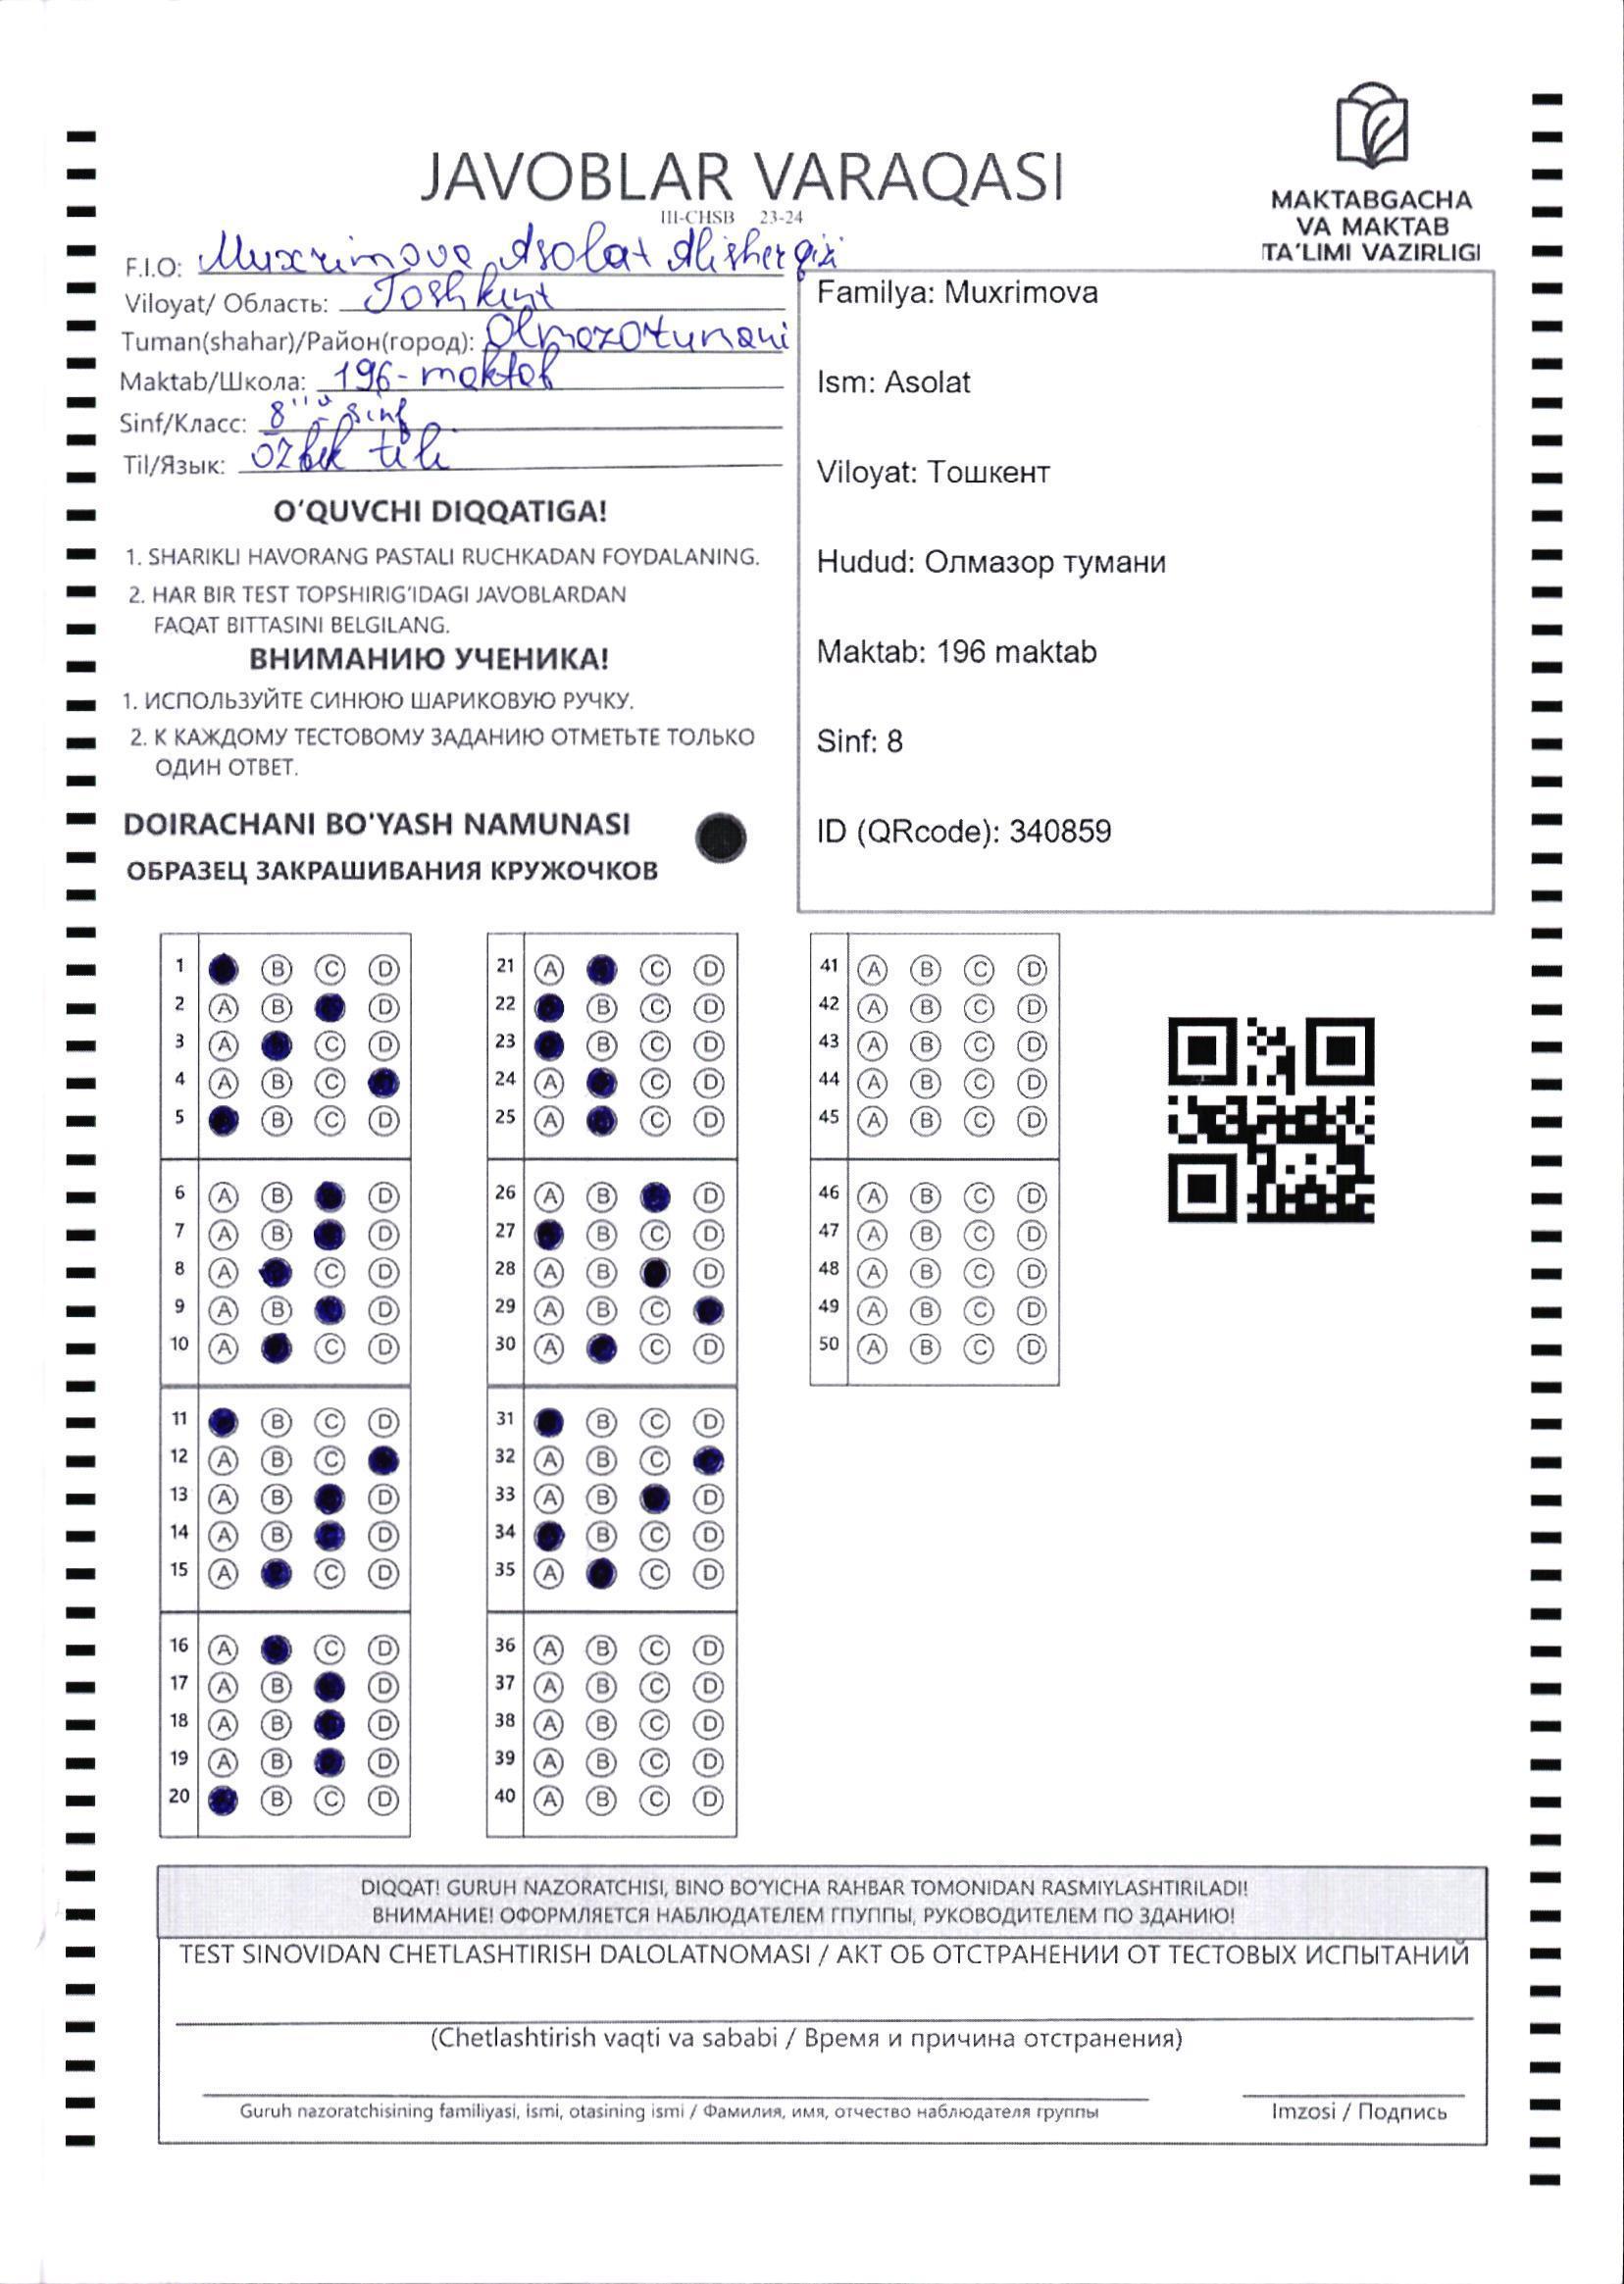 JAVOBLAR VARAQASI
III-CHSB 23-24
MAKTABGACHA
VA MAKTAB
TA'LIMI VAZIRLIGI
F.I.O: Muxrimova Asolat Alisher qizi
Viloyat/ Область: Toshkent
Tuman(shahar)/Район(город): Olmazor tumani
Maktab/Школа: 196-maktab
Sinf/Класс: 8 - sinf
Til/Язык: O'zbek tili
O'QUVCHI DIQQATIGA!
1. SHARIKLI HAVORANG PASTALI RUCHKADAN FOYDALANING.
2. HAR BIR TEST TOPSHIRIG'IDAGI JAVOBLARDAN
FAQAT BITTASINI BELGILANG.
ВНИМАНИЮ УЧЕНИКА!
1. ИСПОЛЬЗУЙТЕ СИНЮЮ ШАРИКОВУЮ РУЧКУ.
2. К КАЖДОМУ ТЕСТОВОМУ ЗАДАНИЮ ОТМЕТЬТЕ ТОЛЬКО
ОДИН ОТВЕТ.
DOIRACHANI BO'YASH NAMUNASI
ОБРАЗЕЦ ЗАКРАШИВАНИЯ КРУЖОЧКОВ
Familya: Muxrimova
Ism: Asolat
Viloyat: Тошкент
Hudud: Олмазор тумани
Maktab: 196 maktab
Sinf: 8
ID (QRcode): 340859
1 B C D
2 A B D
3 A C D
4 A B C
5 B C D
6 A B D
7 A B D
8 A C D
9 A B D
10 A C D
11 B C D
12 A B C
13 A B D
14 A B D
15 A C D
16 A C D
17 A B D
18 A B D
19 A B D
20 B C D
21 A C D
22 B C D
23 B C D
24 A C D
25 A C D
26 A B D
27 B C D
28 A B D
29 A B C
30 A C D
31 B C D
32 A B C
33 A B D
34 B C D
35 A C D
36 A B C D
37 A B C D
38 A B C D
39 A B C D
40 A B C D
41 A B C D
42 A B C D
43 A B C D
44 A B C D
45 A B C D
46 A B C D
47 A B C D
48 A B C D
49 A B C D
50 A B C D
DIQQAT! GURUH NAZORATCHISI, BINO BO'YICHA RAHBAR TOMONIDAN RASMIYLASHTIRILADI!
ВНИМАНИЕ! ОФОРМЛЯЕТСЯ НАБЛЮДАТЕЛЕМ ГПУППЫ, РУКОВОДИТЕЛЕМ ПО ЗДАНИЮ!
TEST SINOVIDAN CHETLASHTIRISH DALOLATNOMASI / АКТ ОБ ОТСТРАНЕНИИ ОТ ТЕСТОВЫХ ИСПЫТАНИЙ
(Chetlashtirish vaqti va sababi / Время и причина отстранения)
Guruh nazoratchisining familiyasi, ismi, otasining ismi / Фамилия, имя, отчество наблюдателя группы
Imzosi / Подпись